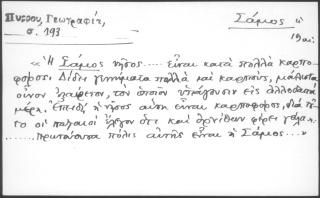 Πύρρου, Γεωγραφία, Σάμος
σ. 193 19 αι.
«Ἡ Σάμος νῆσος..... εἶναι κατὰ πολλὰ καρπο-
φόρος. Δίδει γεννήματα πολλὰ καὶ καρπούς, μάλιστα
οἶνον ἐξαίρετον, τὸν ὁποῖον ὑπάγουσιν εἰς ἀλλοδαπὰ
μέρη. Ἐπειδὴ ἡ νῆσος αὕτη εἶναι καρποφόρος, διὰ τοῦ-
το οἱ παλαιοὶ ἔλεγον ὅτι καὶ ὀρνίθων φέρει γάλα.
...... πρωτεύουσα πόλις αὐτῆς εἶναι ἡ Σάμος...»